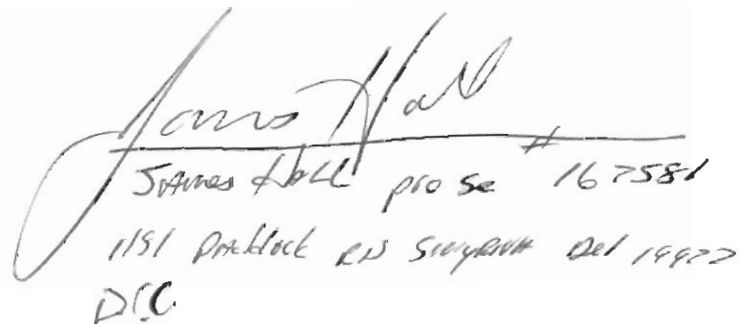 James Hall
James Hall pro se # 167581
1181 Paddock RD Smyrna Del 19977
D.C.C.